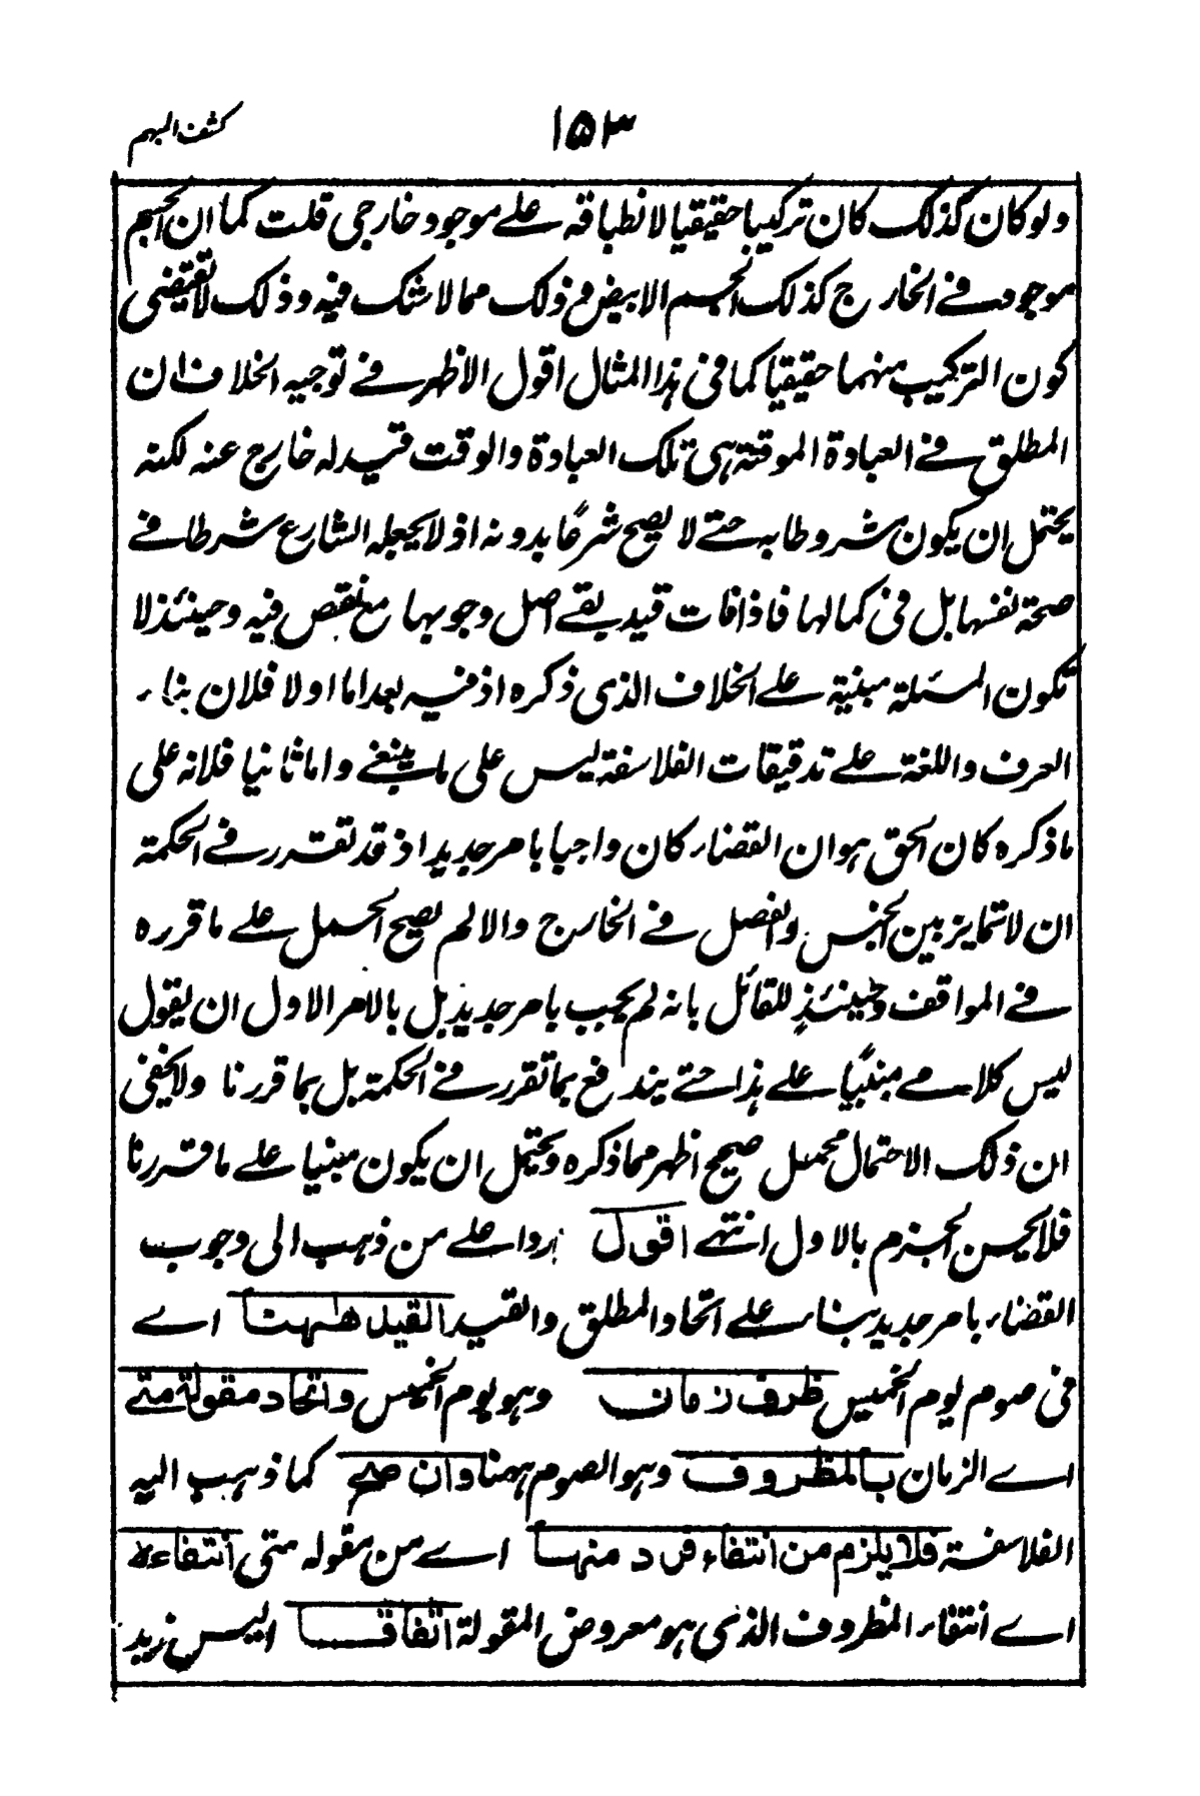 كشف المبهم
١٥٣
ولو كان كذلك كان تركيبا حقيقيا لانطباقه على موجود خارجى قلت كما ان الجسم
موجود فى الخارج كذلك الجسم الابيض و ذلك مما لا شك فيه وذلك لا يقتضى
كون التركيب منهما حقيقيا كما فى هذا المثال اقول الاظهر فى توجيه الخلاف ان
المطلق فى العبادة الموقتة هى تلك العبادة والوقت قيد له خارج عنه لكنه
يحتمل ان يكون مشروطا به حتى لا يصح شرعًا بدونه اذ لا يجعله الشارع شرطا فى
صحة نفسها بل فى كمالها فاذا فات قيد يبقى اصل وجوبها مع نقص فيه وحينئذ لا
تكون المسئلة مبنية على الخلاف الذى ذكره اذ فيه بعد اما اولا فلان بناء
العرف واللغة على تدقيقات الفلاسفة ليس على ما ينبغى واما ثانيا فلانه على
ما ذكره كان الحق هو ان القضاء كان واجبا بامر جديد اذ قد تقرر فى الحكمة
ان لا تمايز بين الجنس والفصل فى الخارج والا لم يصح الحمل على ما قرره
فى المواقف وحينئذٍ للقائل بانه لم يجب بامر جديد بل بالامر الاول ان يقول
ليس كلامى مبنيًا على هذا حتى يندفع بما تقرر فى الحكمة بل بما قررنا ولا يخفى
ان ذلك الاحتمال محتمل صحيح اظهر مما ذكره ويحتمل ان يكون مبنيا على ما قررنا
فلا يحسن الجزم بالاول انتهى اقول ردا على من ذهب الى وجوب
القضاء بامر جديد بناء على اتحاد المطلق والقيد القيد ههنا اى
فى صوم يوم الخميس ظرف زمان وهو يوم الخميس واتحاد مقولة متى
اى الزمان بالمظروف وهو الصوم ههنا وان صح كما ذهب اليه
الفلاسفة فلا يلزم من انتفاء فرد منها اى من مقوله متى انتفاءه
اى انتفاء المظروف الذى هو معروض المقولة اتفاقا اليس زيد